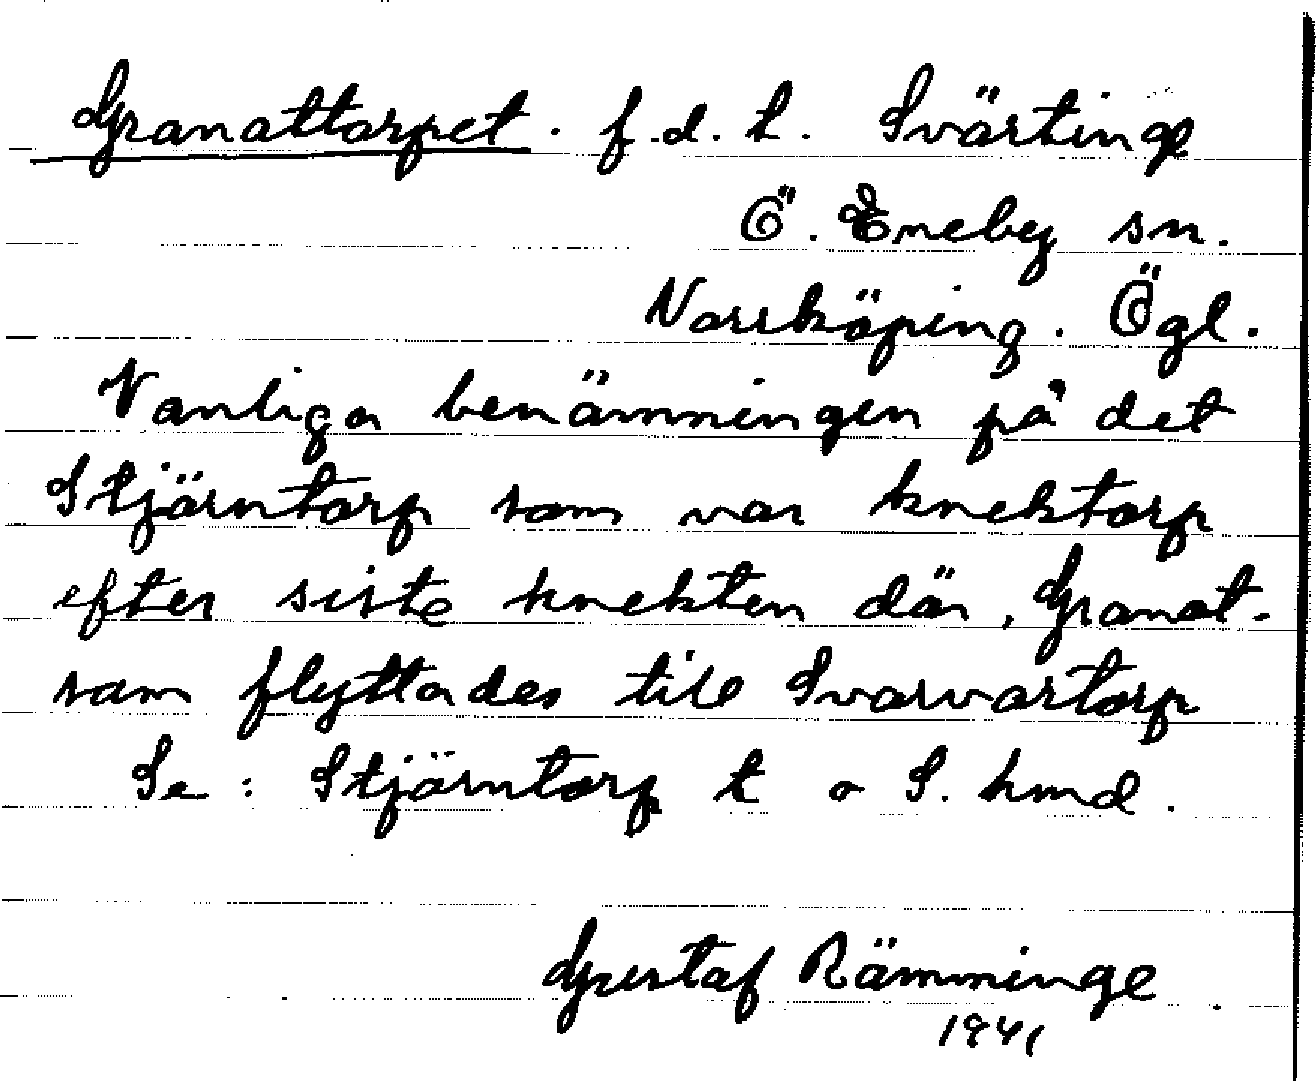 Granattorpet. f.d. t. Svärtinge
Ö. Eneby sn.
Norrköping. Ögl.
Vanliga benämningen på det
Stjärntorp som var knektorp
efter siste knekten där, Granat-
som flyttades till Svarvartorp
Se: Stjärntorp t o S. hmd.
Gustaf Rämminge
1941